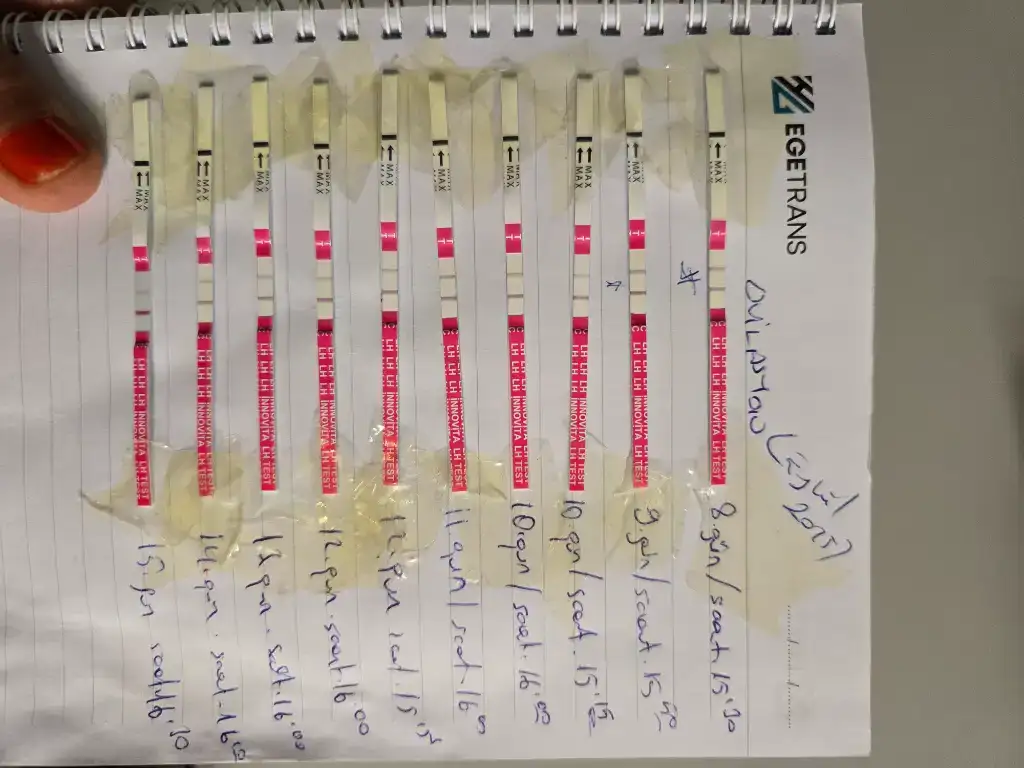 EGETRANS
2025)
8.gün/saat.15:30
9.gün/saat.15:50
10.gün/saat.15:15
10.gün/saat.16:00
11.gün/saat.16:00
12.gün saat.15:15
12.gün.saat.16:00
13.gün.saat.16:00
14.gün.saat.16:00
15.gün saat16:30
← MAX T C LH LH LH INNOVITA LH TEST
← MAX T C LH LH LH INNOVITA LH TEST
← MAX T C LH LH LH INNOVITA LH TEST
← MAX T C LH LH LH INNOVITA LH TEST
← MAX T C LH LH LH INNOVITA LH TEST
← MAX T C LH LH LH INNOVITA LH TEST
← MAX T C LH LH LH INNOVITA LH TEST
← MAX T C LH LH LH INNOVITA LH TEST
← MAX T C LH LH LH INNOVITA LH TEST
← MAX T LH LH LH INNOVITA LH TEST